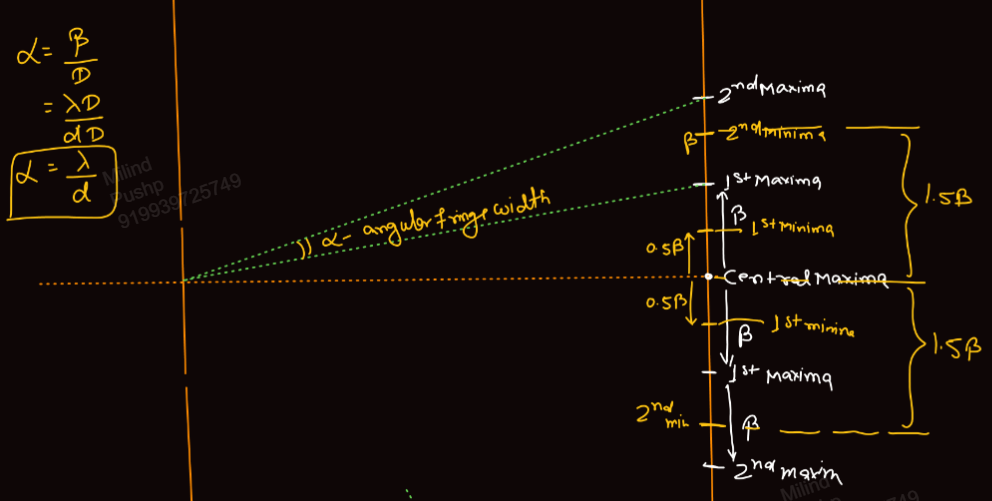 α = β/D
= λD/dD
α = λ/d
Milind
Pushp
919939725749
α - angular fringe width
2nd Maxima
β 2nd minima
1st Maxima
β
1st minima
0.5β
1.5β
Central Maxima
0.5β
1st minina
β
1.5β
1st Maxima
2nd min
β
2nd maxim
Milind